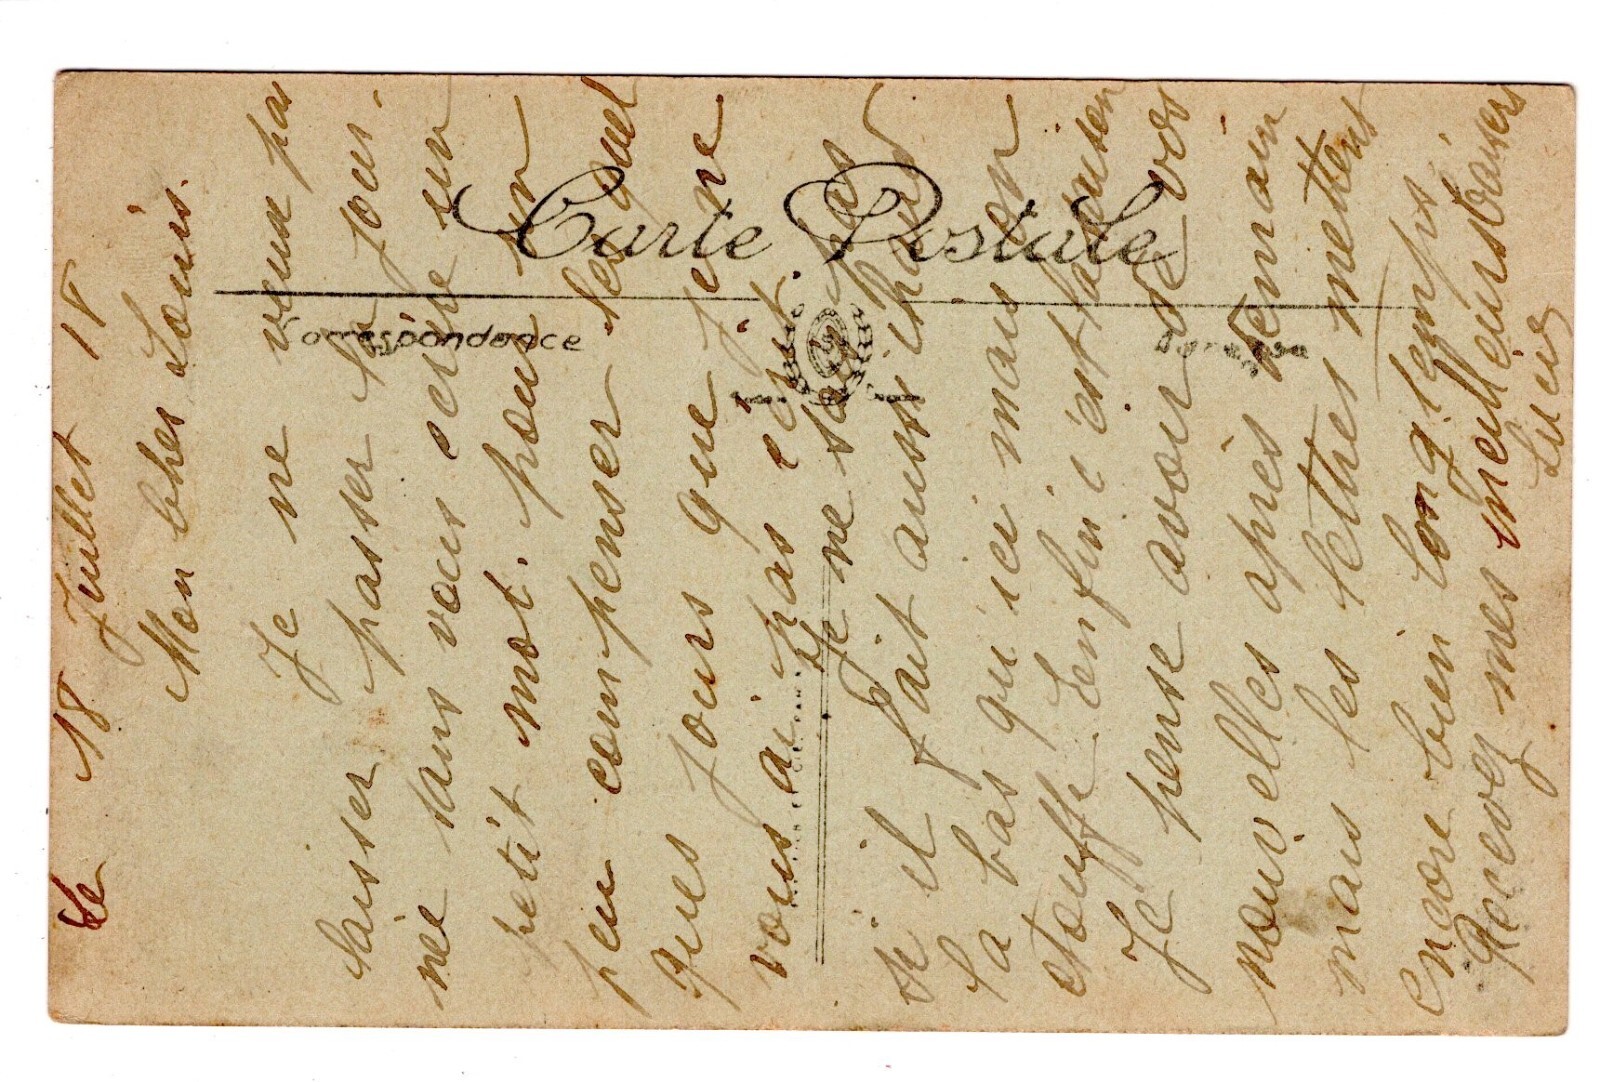 Carte Postale
Correspondance
Le 18 Juillet 18
Mon cher Louis.
Je ne veux pas
laisser passer la jour-
née sans vous ecrire un
petit mot. pour un
peu compenser les quel
ques jours que je ne
vous ai pas ecrit.
Je ne sais pas
si il fait aussi chaud
la bas qu'ici mais on
etouffe. Enfin c'est la saison
Je pense avoir de vos
nouvelles après demain
mais les lettres mettent
encore bien longtemps.
Recevez mes meilleurs baisers
Lucie